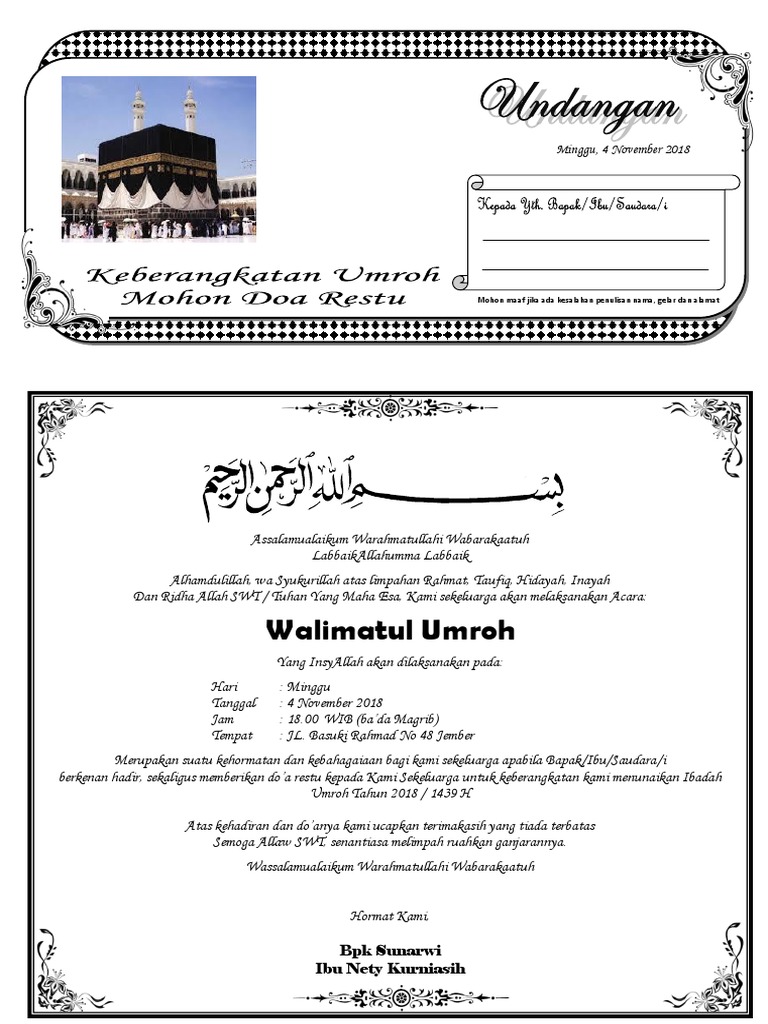 Undangan
Minggu, 4 November 2018
Kepada Yth. Bapak/Ibu/Saudara/i
Keberangkatan Umroh
Mohon Doa Restu
Mohon maaf jika ada kesalahan penulisan nama, gelar dan alamat
بِسْمِ اللهِ الرَّحْمٰنِ الرَّحِيْمِ
Assalamualaikum Warahmatullahi Wabarakaatuh
LabbaikAllahumma Labbaik
Alhamdulillah, wa Syukurillah atas limpahan Rahmat, Taufiq, Hidayah, Inayah
Dan Ridha Allah SWT / Tuhan Yang Maha Esa, Kami sekeluarga akan melaksanakan Acara:
Walimatul Umroh
Yang InsyAllah akan dilaksanakan pada:
Hari : Minggu
Tanggal : 4 November 2018
Jam : 18.00 WIB (ba'da Magrib)
Tempat : JL. Basuki Rahmad No 48 Jember
Merupakan suatu kehormatan dan kebahagaiaan bagi kami sekeluarga apabila Bapak/Ibu/Saudara/i
berkenan hadir, sekaligus memberikan do'a restu kepada Kami Sekeluarga untuk keberangkatan kami menunaikan Ibadah
Umroh Tahun 2018 / 1439 H
Atas kehadiran dan do'anya kami ucapkan terimakasih yang tiada terbatas
Semoga Allaw SWT, senantiasa melimpah ruahkan ganjarannya.
Wassalamualaikum Warahmatullahi Wabarakaatuh
Hormat Kami
Bpk Sunarwi
Ibu Nety Kurniasih